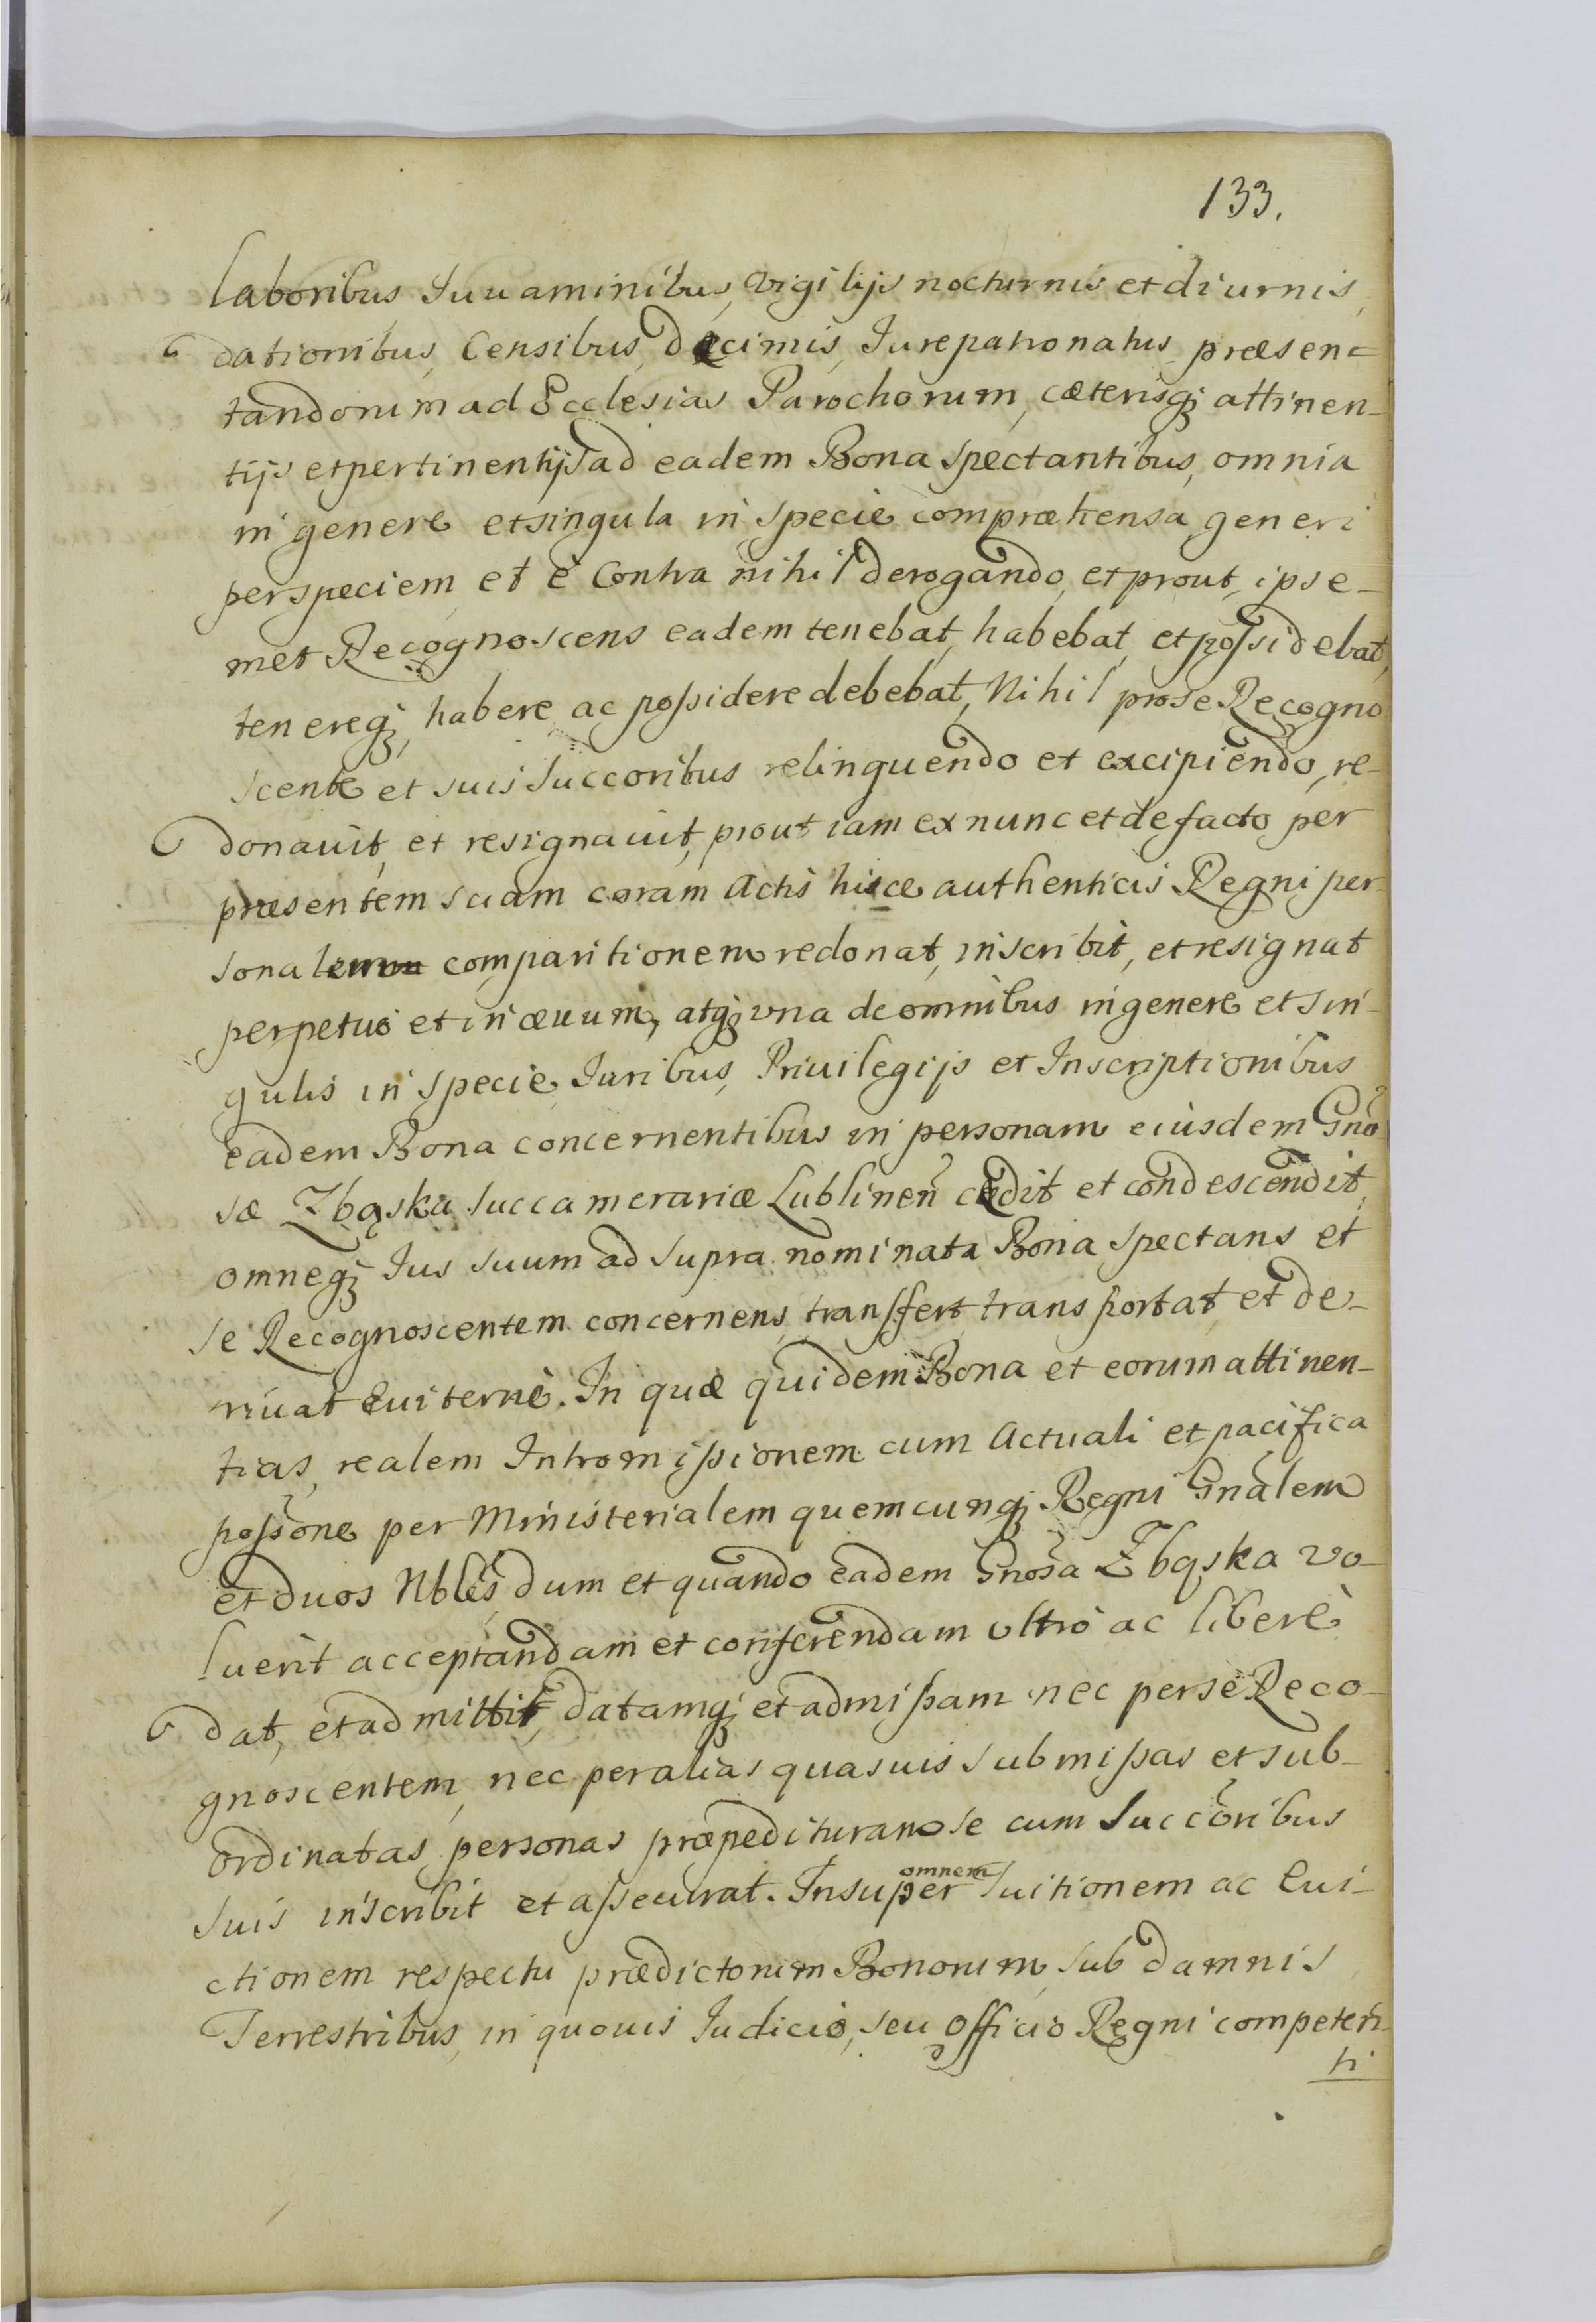 133.
laboribus Iuuaminibus, vigilijs nocturnis et diurnis,
dationibus, Censibus, decimis, Iurepatronatus præsen=
tandorum ad Ecclesias Parochorum, cæterisq₃ attinen-
tijs et pertinentijs ad eadem Bona spectantibus, omnia
in genere et singula in specie compræhensa, generi
per speciem et è Contra nihil derogando, et prout, ipse-
met Recognoscens eadem tenebat, habebat, et possidebat,
tenereq₃, habere ac possidere debebat, Nihil pro se Recogno
scente et suis Succoribus relinquendo et excipiendo, re-
donauit, et resignauit, prout iam ex nunc et de facto per
præsentem suam coram Actis hisce authenticis Regni per-
sonalem comparitionem redonat, inscribit, et resignat
perpetuò et in æuum, atq₃ vna de omnibus in genere et sin-
gulis in specie, Iuribus, Priuilegijs et Inscriptionibus
eadem Bona concernentibus in personam eiusdem Gno
sæ Zbąska Succamerariæ Lublinen̄ cedit et condescendit,
omneq₃ Ius suum ad supra nominata Bona spectans et
se Recognoscentem concernens, transfert transportat, et de-
riuat Euiternè. In quæ quidem Bona et eorum attinen-
tias, realem Intromissionem cum Actuali et pacifica
possone per Ministerialem quemcunq₃ Regni Gnalem
et duos Nbles, dum et quando eadem Gnosa Zbąska vo-
luerit acceptandam et conferendam vltrò ac liberè
dat, et admittit, datamq₃ et admissam nec per se Reco-
gnoscentem, nec per alias quasuis submissas et sub-
ordinatas personas præpedituram se cum Succoribus
suis inscribit et assecurat. Insuper omnem Tuitionem ac Eui-
ctionem respectu prædictorum Bonorum, sub damnis
Terrestribus, in quouis Iudicio, seu Officio Regni competen-
ti